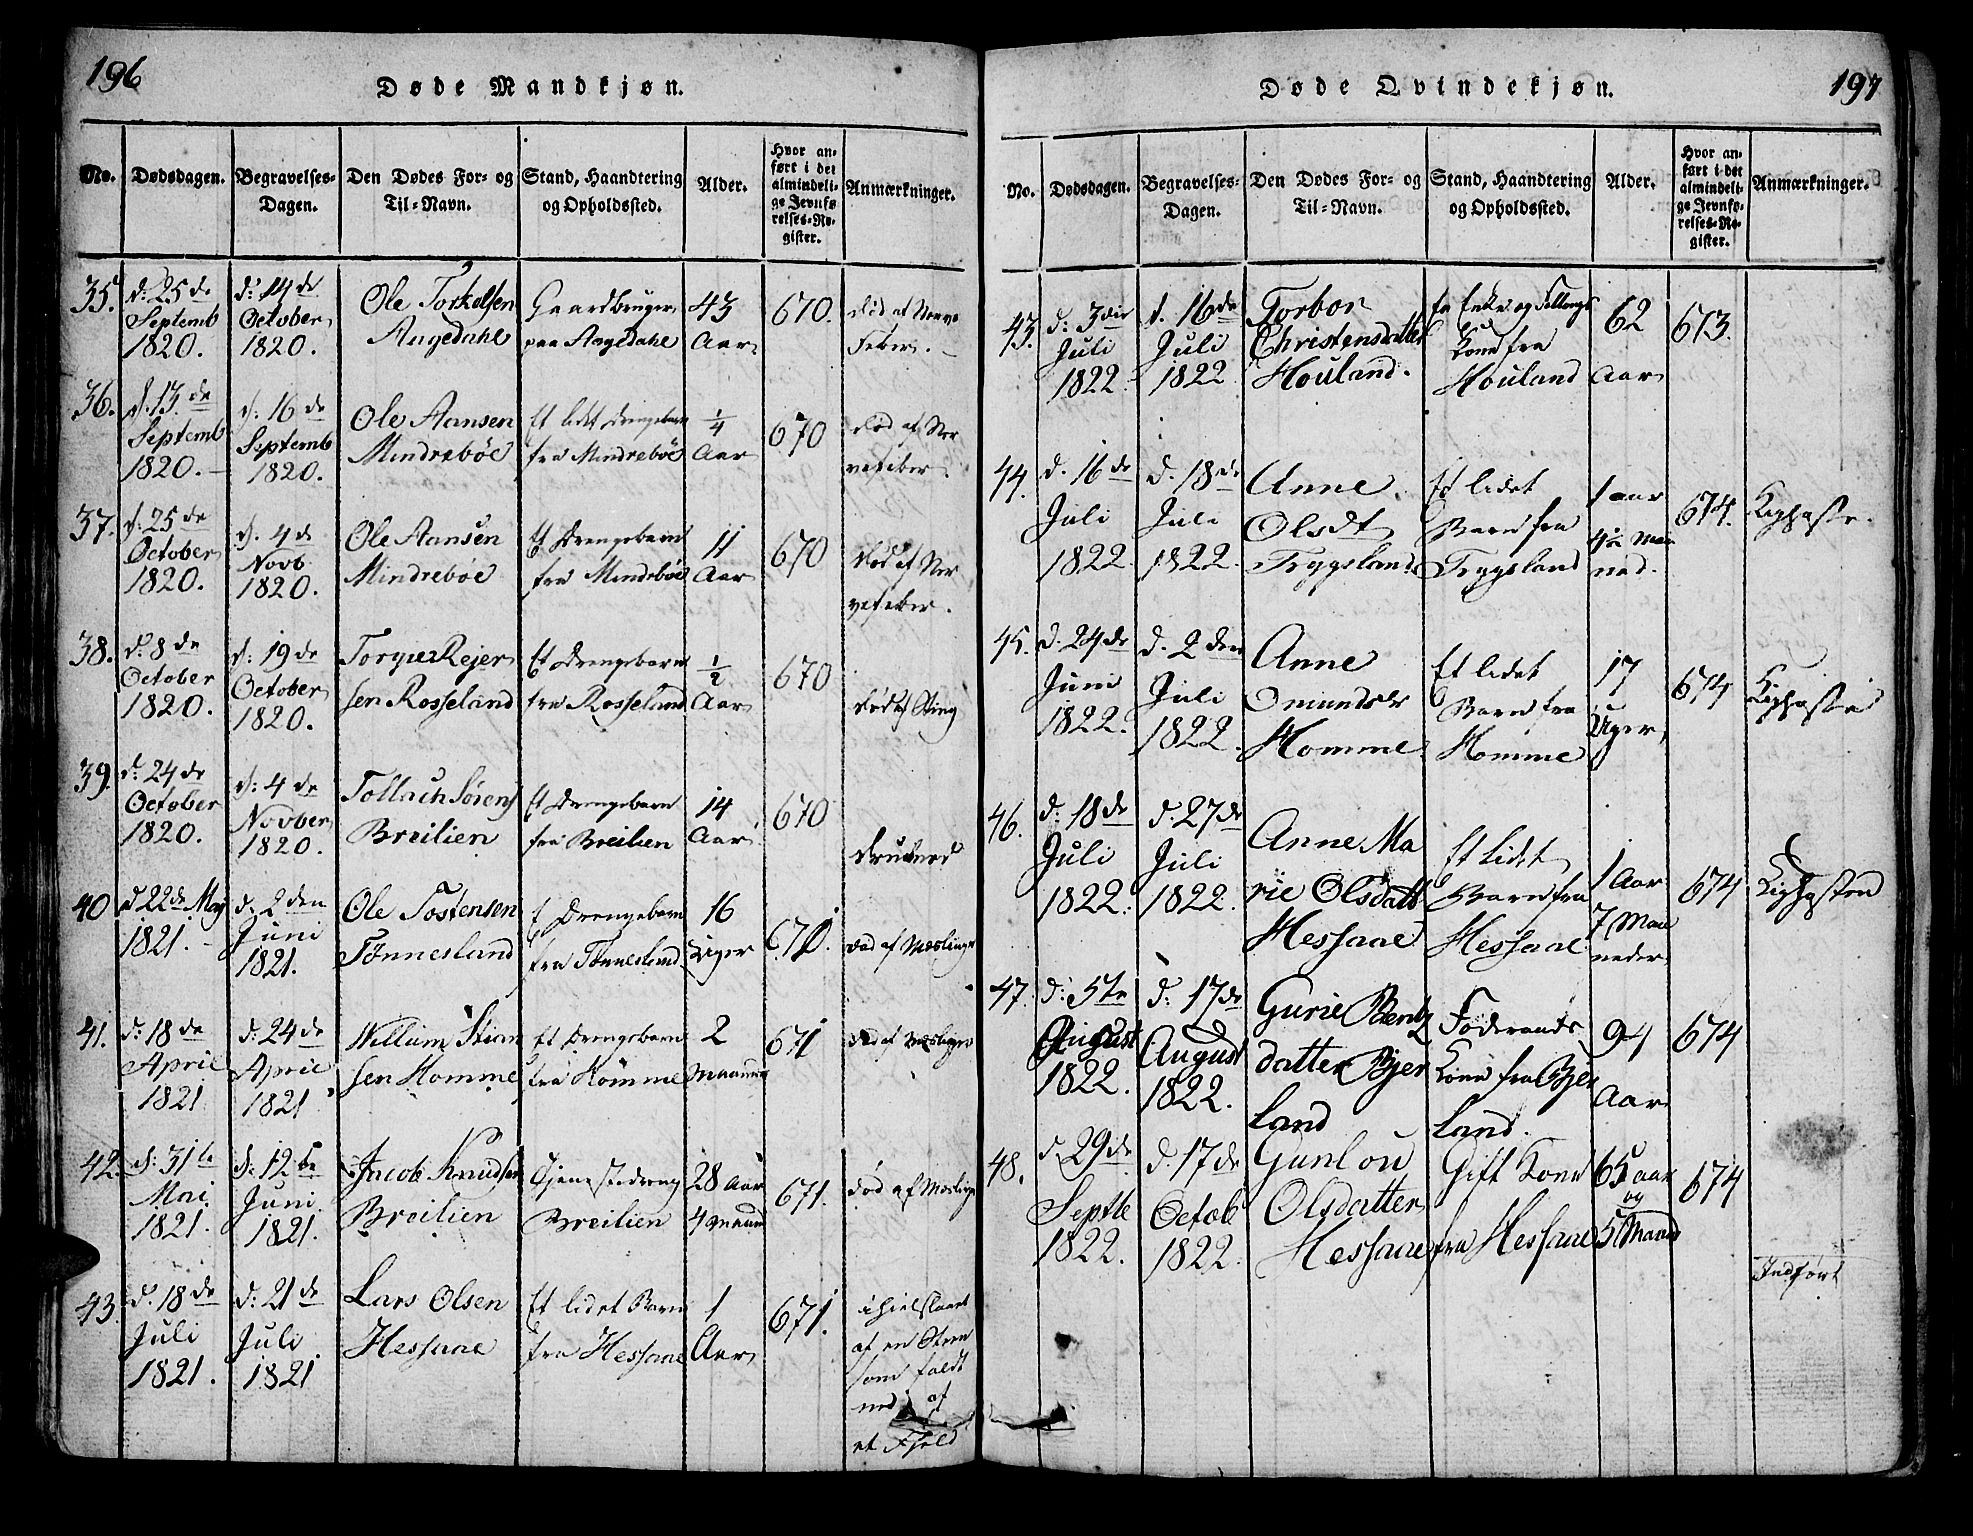 196
Døde Mandkjøn.
No. Dødsdagen. Begravelses-Dagen. Den Dødes For- og Til-Navn. Stand, Haandtering og Opholdssted. Alder. Hvor anført i det almindelige Jevnførelses-Register. Anmærkninger.
35. d: 25de Septemb 1820. d: 14de October 1820. Ole Torkelsen Augedahl Gaardbruger paa Augedahl 43 Aar 670. død af Nerve Feber.
36. d. 13de Septemb 1820. d. 16de Septemb 1820. Ole Aansen Mindrebøe Et lidet Drengebarn fra Mindrebøe 1/4 Aar 670 død af Nervefeber
37. d. 25de October 1820. d. 4de Novb 1820. Ole Aansen Mindrebøe Et Drengebarn fra Mindrebøe 11 Aar 670 død af Nervefeber.
38. d. 8de October 1820. d. 19de October 1820. Torgie Rejersen Rosseland Et Drengebarn fra Rosseland 1/2 Aar 670 død af Sting
39. d: 24de October 1820. d: 4de Novber 1820. Tollach Sørens Breilien Et Drengebarn fra Breilien 14 Aar 670 druknod
40 d 22de Maj 1821. d. 2den Juni 1821. Ole Tostensen Tønnesland Et Drengebarn fra Tønnesland 16 Uger 670. død af Mæslinge
41. d: 18de April 1821 d: 24de April 1821 Willum Stiansen Homme Et Drengebarn fra Homme 2 671 død af Mæslinger
42. d: 31te Mai 1821. d: 12te Juni 1821. Jacob Knudsen Breilien Tjenestedreng Breilien 28 Aar 4 671. død af Mæslinge
43. d. 18de Juli 1821. d: 21de Juli 1821 Lars Olsen Hessaae Et lidet Barn fra Hessaae 1 Aar 671. ihielslaaet af en Steen som faldt ned af et Field
Døde Qvindekjøn.
197
No. Dødsdagen. Begravelses-Dagen. Den Dødes For- og Til-Navn. Stand, Haandtering og Opholdssted. Alder. Hvor anført i det almindelige Jevnførelses-Register. Anmærkninger.
43. d: 3die Juli 1822. d. 16de Juli 1822 Torbor Christensdatter Houland. En Enke og Kone fra Houland 62 Aar 673.
44. d. 16de Juli 1822. d. 18de Juli 1822. Anne Olsdt Trygsland Et lidet Barn fra Trygsland 1 aar 674. Kighoste.
45. d. 24de Juni 1822. d. 2den Juli 1822. Anne Omundsdr Homme Et lidet Barn fra Homme 17 Uger 674 Kighoste
46. d: 18de Juli 1822. d. 27de Juli 1822. Anne Marie Olsdatt Hessaae Et lidet Barn fra Hessaae 1 Aar 7 Maaneder 674 Kighosten
47. d: 5te August 1822. d: 17de August 1822. Gurie Bentz datter Bjerland Føderaads Kone fra Bjerland. 94 Aar 674
48. d. 29de Septb 1822. d. 17de Octob 1822. Gunlou Olsdatter Hessaae Gift Kone fra Hessaae 65 aar og 5 Maaned 674
Indført